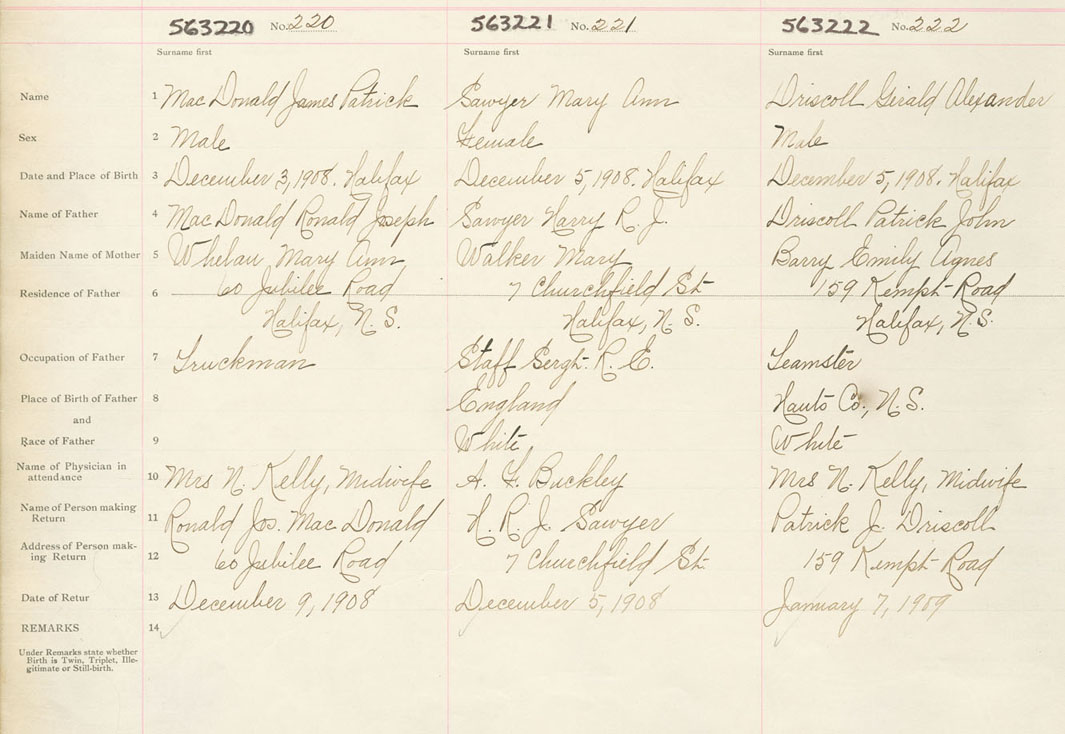 563220 No. 220 563221 No. 221 563222 No. 222
Surname first Surname first Surname first
Name 1 Mac Donald James Patrick Sawyer Mary Ann Driscoll Gerald Alexander
Sex 2 Male Female Male
Date and Place of Birth 3 December 3, 1908. Halifax December 5, 1908. Halifax December 5, 1908. Halifax
Name of Father 4 Mac Donald Ronald Joseph Sawyer Harry R. J. Driscoll Patrick John
Maiden Name of Mother 5 Whelan Mary Ann Walker Mary Barry Emily Agnes
Residence of Father 6 60 Jubilee Road 7 Churchfield St 159 Kempt Road
Halifax, N. S. Halifax, N. S. Halifax, N.S.
Occupation of Father 7 Truckman Staff Sergt. R. E. Teamster
Place of Birth of Father 8 England Hants Co., N. S.
and
Race of Father 9 White White
Name of Physician in
attendance 10 Mrs N. Kelly, Midwife A. F. Buckley Mrs N. Kelly, Midwife
Name of Person making
Return 11 Ronald Jos. Mac Donald H. R. J. Sawyer Patrick J. Driscoll
Address of Person mak-
ing Return 12 60 Jubilee Road 7 Churchfield St. 159 Kempt Road
Date of Retur 13 December 9, 1908 December 5, 1908 January 7, 1909
REMARKS 14
Under Remarks state whether
Birth is Twin, Triplet, Ille-
gitimate or Still-birth.